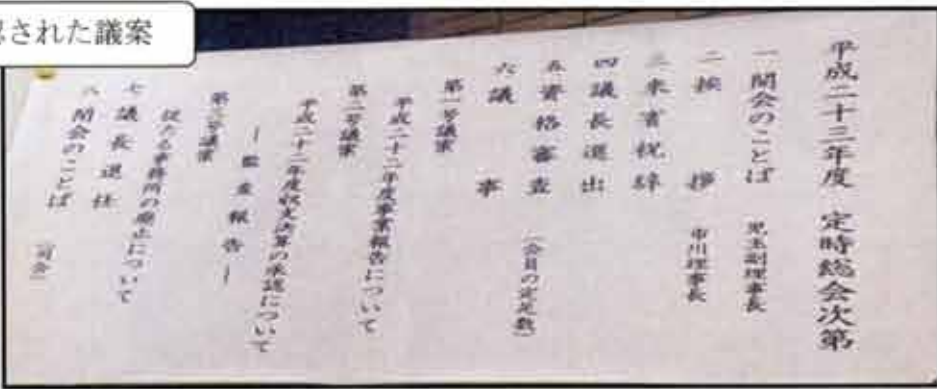 された議案
平成二十三年度 定時総会次第
一 開会のことば 児玉副理事長
二 挨拶 市川理事長
三 来賓祝辞
四 議長選出
五 資格審査 (会員の定足数)
六 議事
第一号議案
平成二十二年度事業報告について
第二号議案
平成二十二年度収支決算の承認について
― 監査報告 ―
第三号議案
従たる事務所の廃止について
七 議長退任
八 閉会のことば (司会)